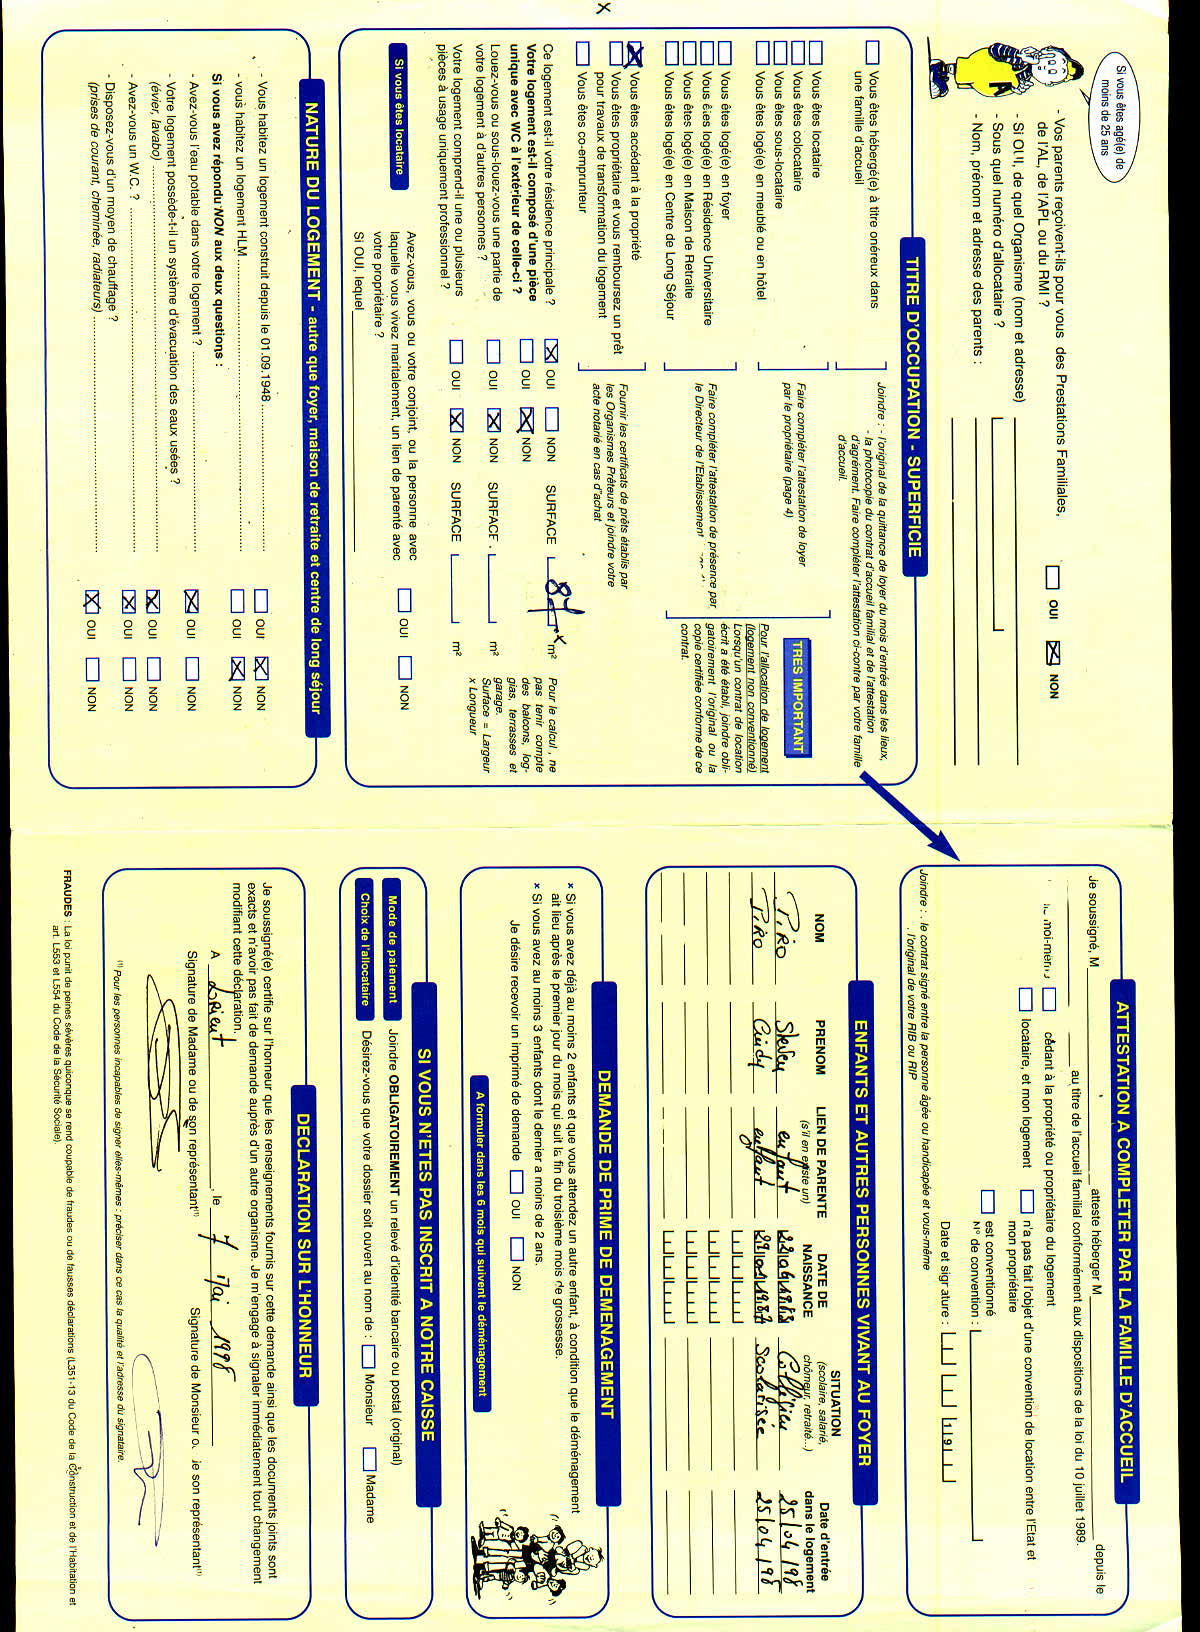 Si vous êtes agé(e) de
moins de 25 ans
- Vos parents reçoivent-ils pour vous des Prestations Familiales,
de l'AL, de l'APL ou du RMI ?
OUI NON
- Si OUI, de quel Organisme (nom et adresse)
- Sous quel numéro d'allocataire ?
- Nom, prénom et adresse des parents :
TITRE D'OCCUPATION - SUPERFICIE
Vous êtes hébergé(e) à titre onéreux dans
une famille d'accueil
Joindre : - l'original de la quittance de loyer du mois d'entrée dans les lieux,
- la photocopie du contrat d'accueil familial et de l'attestation
d'agrément. Faire compléter l'attestation ci-contre par votre famille
d'accueil.
Vous êtes locataire
Vous êtes colocataire
Vous êtes sous-locataire
Vous êtes logé(e) en meublé ou en hôtel
Faire compléter l'attestation de loyer
par le propriétaire (page 4)
Vous êtes logé(e) en foyer
Vous êtes logé(e) en Résidence Universitaire
Vous êtes logé(e) en Maison de Retraite
Vous êtes logé(e) en Centre de Long Séjour
Faire compléter l'attestation de présence par
le Directeur de l'Etablissement
TRES IMPORTANT
Pour l'allocation de logement
(logement non conventionné)
Lorsqu'un contrat de location
écrit a été établi, joindre obli-
gatoirement l'original ou la
copie certifiée conforme de ce
contrat.
Vous êtes accédant à la propriété
Vous êtes propriétaire et vous remboursez un prêt
pour travaux de transformation du logement
Vous êtes co-emprunteur
Fournir les certificats de prêts établis par
les Organismes Prêteurs et joindre votre
acte notarié en cas d'achat
Ce logement est-il votre résidence principale ? OUI NON SURFACE 87 m²
Votre logement est-il composé d'une pièce
unique avec WC à l'extérieur de celle-ci ? OUI NON
Louez-vous ou sous-louez-vous une partie de
votre logement à d'autres personnes ? OUI NON SURFACE m²
Votre logement comprend-il une ou plusieurs
pièces à usage uniquement professionnel ? OUI NON SURFACE m²
Pour le calcul, ne
pas tenir compte
des balcons, log-
gias, terrasses et
garage.
Surface = Largeur
x Longueur
Si vous êtes locataire
Avez-vous, vous ou votre conjoint, ou la personne avec
laquelle vous vivez maritalement, un lien de parenté avec
votre propriétaire ? OUI NON
Si OUI, lequel
NATURE DU LOGEMENT - autre que foyer, maison de retraite et centre de long séjour
- Vous habitez un logement construit depuis le 01.09.1948 OUI NON
- vous habitez un logement HLM OUI NON
Si vous avez répondu NON aux deux questions :
- Avez-vous l'eau potable dans votre logement ? OUI NON
- Votre logement possède-t-il un système d'évacuation des eaux usées ?
(évier, lavabo) OUI NON
- Avez-vous un W.C. ? OUI NON
- Disposez-vous d'un moyen de chauffage ?
(prises de courant, cheminée, radiateurs) OUI NON
ATTESTATION A COMPLETER PAR LA FAMILLE D'ACCUEIL
Je soussigné, M atteste héberger M depuis le
au titre de l'accueil familial conformément aux dispositions de la loi du 10 juillet 1989.
moi-même
cédant à la propriété ou propriétaire du logement
locataire, et mon logement
n'a pas fait l'objet d'une convention de location entre l'Etat et
mon propriétaire
est conventionné
N° de convention :
Date et signature : 19
Joindre : . le contrat signé entre la personne âgée ou handicapée et vous-même
. l'original de votre RIB ou RIP
ENFANTS ET AUTRES PERSONNES VIVANT AU FOYER
NOM PRENOM LIEN DE PARENTE (s'il en existe un) DATE DE NAISSANCE SITUATION (scolaire, salarié, chômeur, retraité...) Date d'entrée dans le logement
PIRO enfant 25/04/98
PIRO Cindy enfant Scolarisée 25/04/98
DEMANDE DE PRIME DE DEMENAGEMENT
* Si vous avez déjà au moins 2 enfants et que vous attendez un autre enfant, à condition que le déménagement
ait lieu après le premier jour du mois qui suit la fin du troisième mois de grossesse.
* Si vous avez au moins 3 enfants dont le dernier a moins de 2 ans.
Je désire recevoir un imprimé de demande OUI NON
A formuler dans les 6 mois qui suivent le déménagement
SI VOUS N'ETES PAS INSCRIT A NOTRE CAISSE
Mode de paiement Joindre OBLIGATOIREMENT un relevé d'identité bancaire ou postal (original)
Choix de l'allocataire Désirez-vous que votre dossier soit ouvert au nom de : Monsieur Madame
DECLARATION SUR L'HONNEUR
Je soussigné(e) certifie sur l'honneur que les renseignements fournis sur cette demande ainsi que les documents joints sont
exacts et n'avoir pas fait de demande auprès d'un autre organisme. Je m'engage à signaler immédiatement tout changement
modifiant cette déclaration.
A Lorient, le 7 Mai 1998
Signature de Madame ou de son représentant(1) Signature de Monsieur o. le son représentant(1)
(1) Pour les personnes incapables de signer elles-mêmes : préciser dans ce cas la qualité et l'adresse du signataire.
FRAUDES : La loi punit de peines sévères quiconque se rend coupable de fraudes ou de fausses déclarations (L351-13 du Code de la Construction et de l'Habitation et
art. L553 et L554 du Code de la Sécurité Sociale).